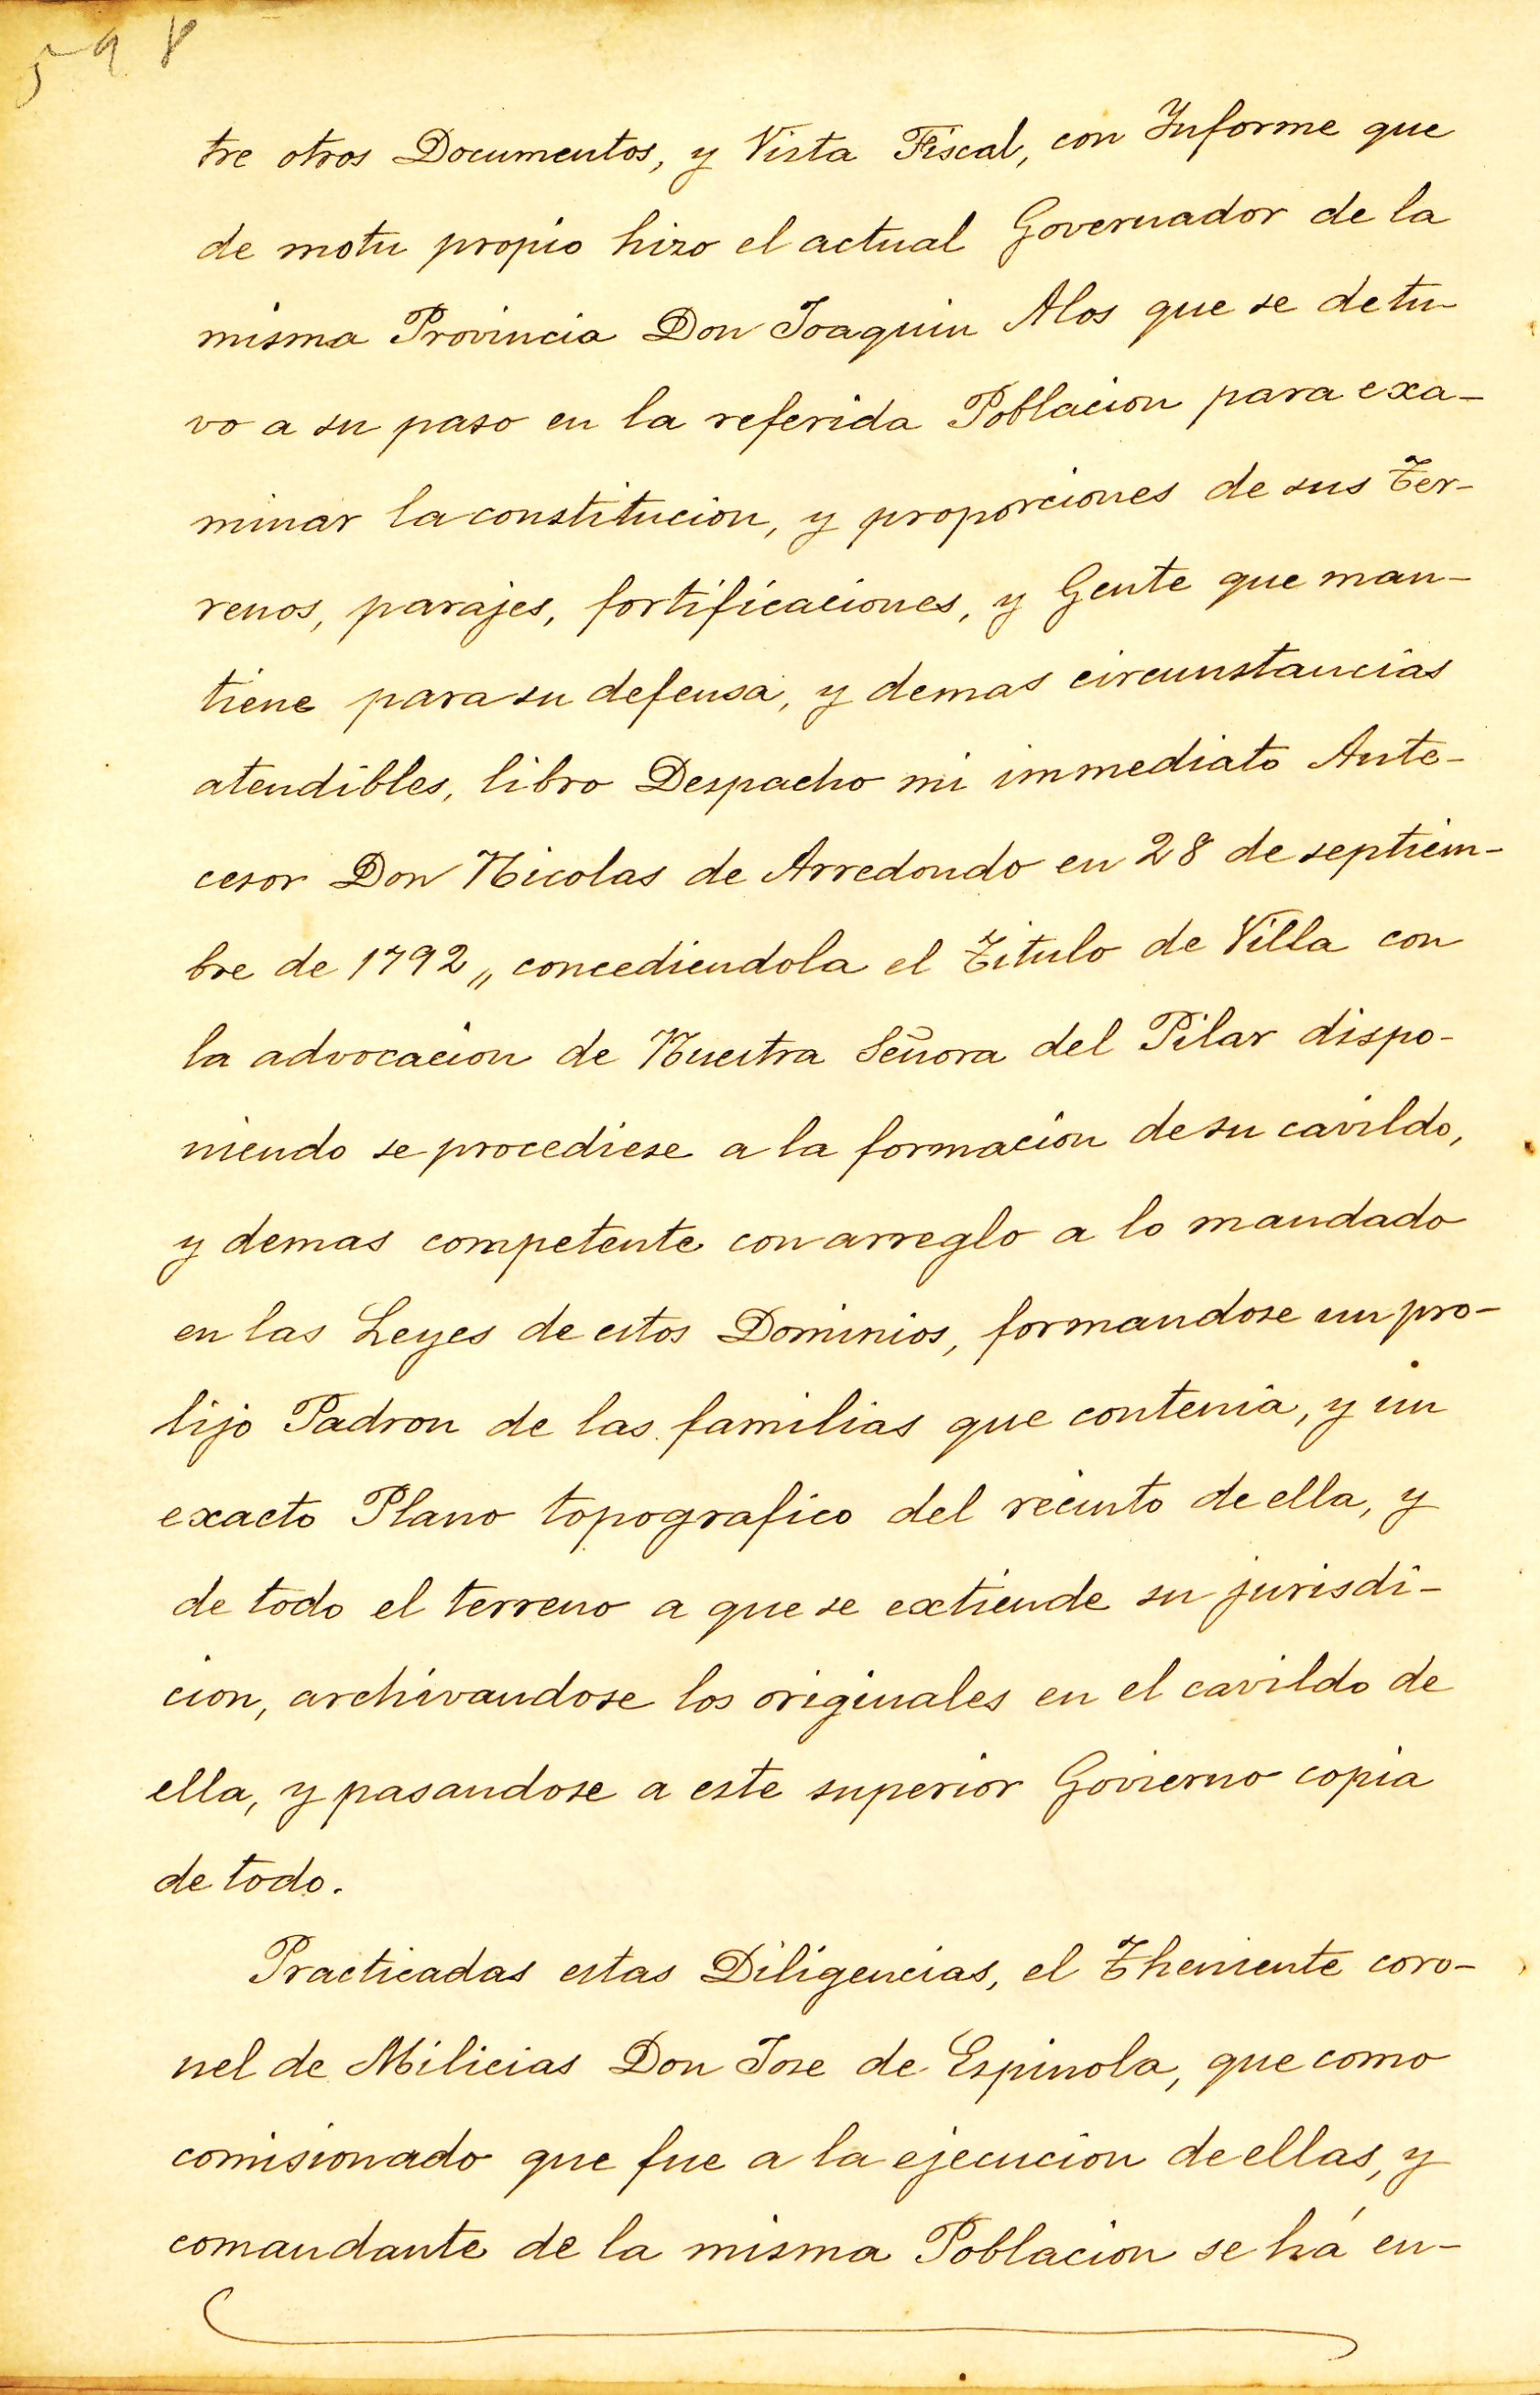 598
tre otros Documentos, y Vista Fiscal, con Informe que
de motu propio hizo el actual Governador de la
misma Provincia Don Joaquin Alos que se detu-
vo a su paso en la referida Poblacion para exa-
minar la constitucion, y proporciones de sus Ter-
renos, parajes, fortificaciones, y Gente que man-
tiene para su defensa, y demas circunstancias
atendibles, libro Despacho mi immediato Ante-
cesor Don Nicolas de Arredondo en 28 de septiem-
bre de 1792,, concediendola el Titulo de Villa con
la advocacion de Nuestra Señora del Pilar dispo-
niendo se procediese a la formacion de su cavildo,
y demas competente con arreglo a lo mandado
en las Leyes de estos Dominios, formandose un pro-
lijo Padron de las familias que contenia, y un
exacto Plano topografico del recinto de ella, y
de todo el terreno a que se extiende su jurisdi-
cion, archivandose los originales en el cavildo de
ella, y pasandose a este superior Govierno copia
de todo.
Practicadas estas Diligencias, el Theniente coro-
nel de Milicias Don Jose de Espinola, que como
comisionado que fue a la ejecucion de ellas, y
comandante de la misma Poblacion se há en-